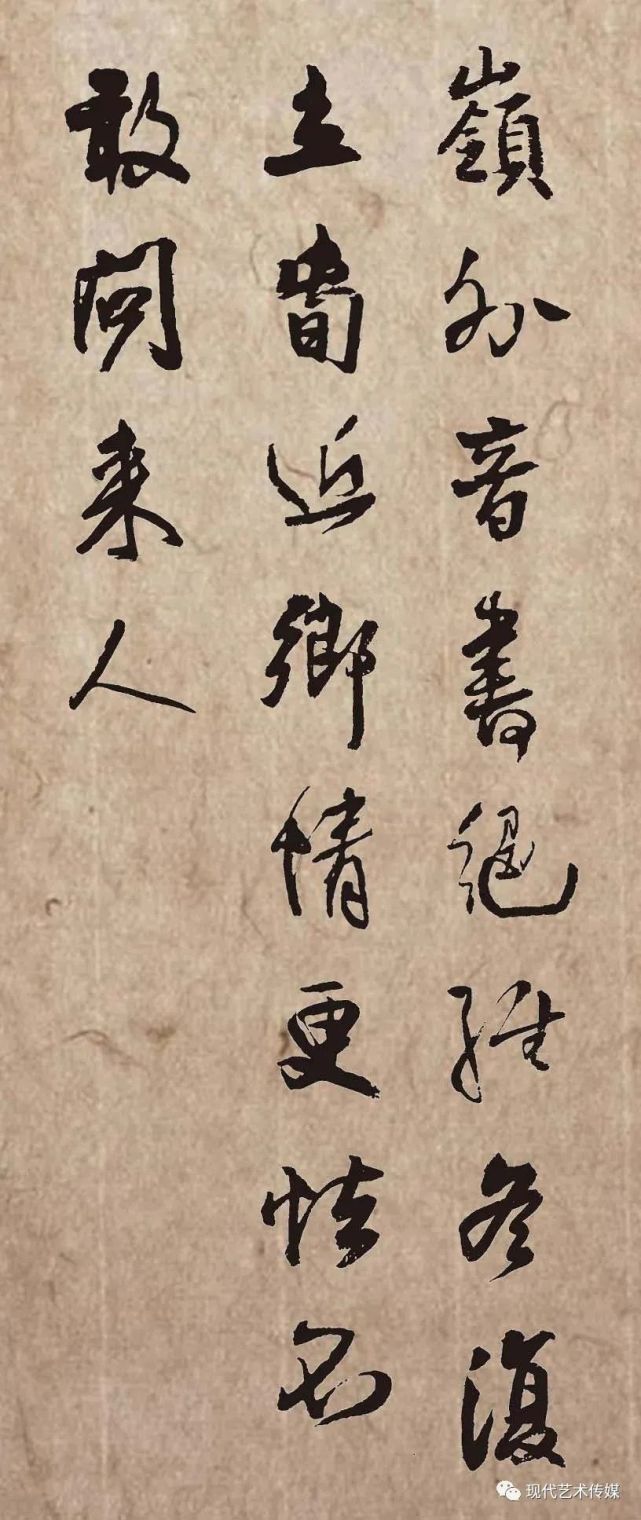 嶺外音書絕經冬復
立春近鄉情更怯不
敢問来人
现代艺术传媒